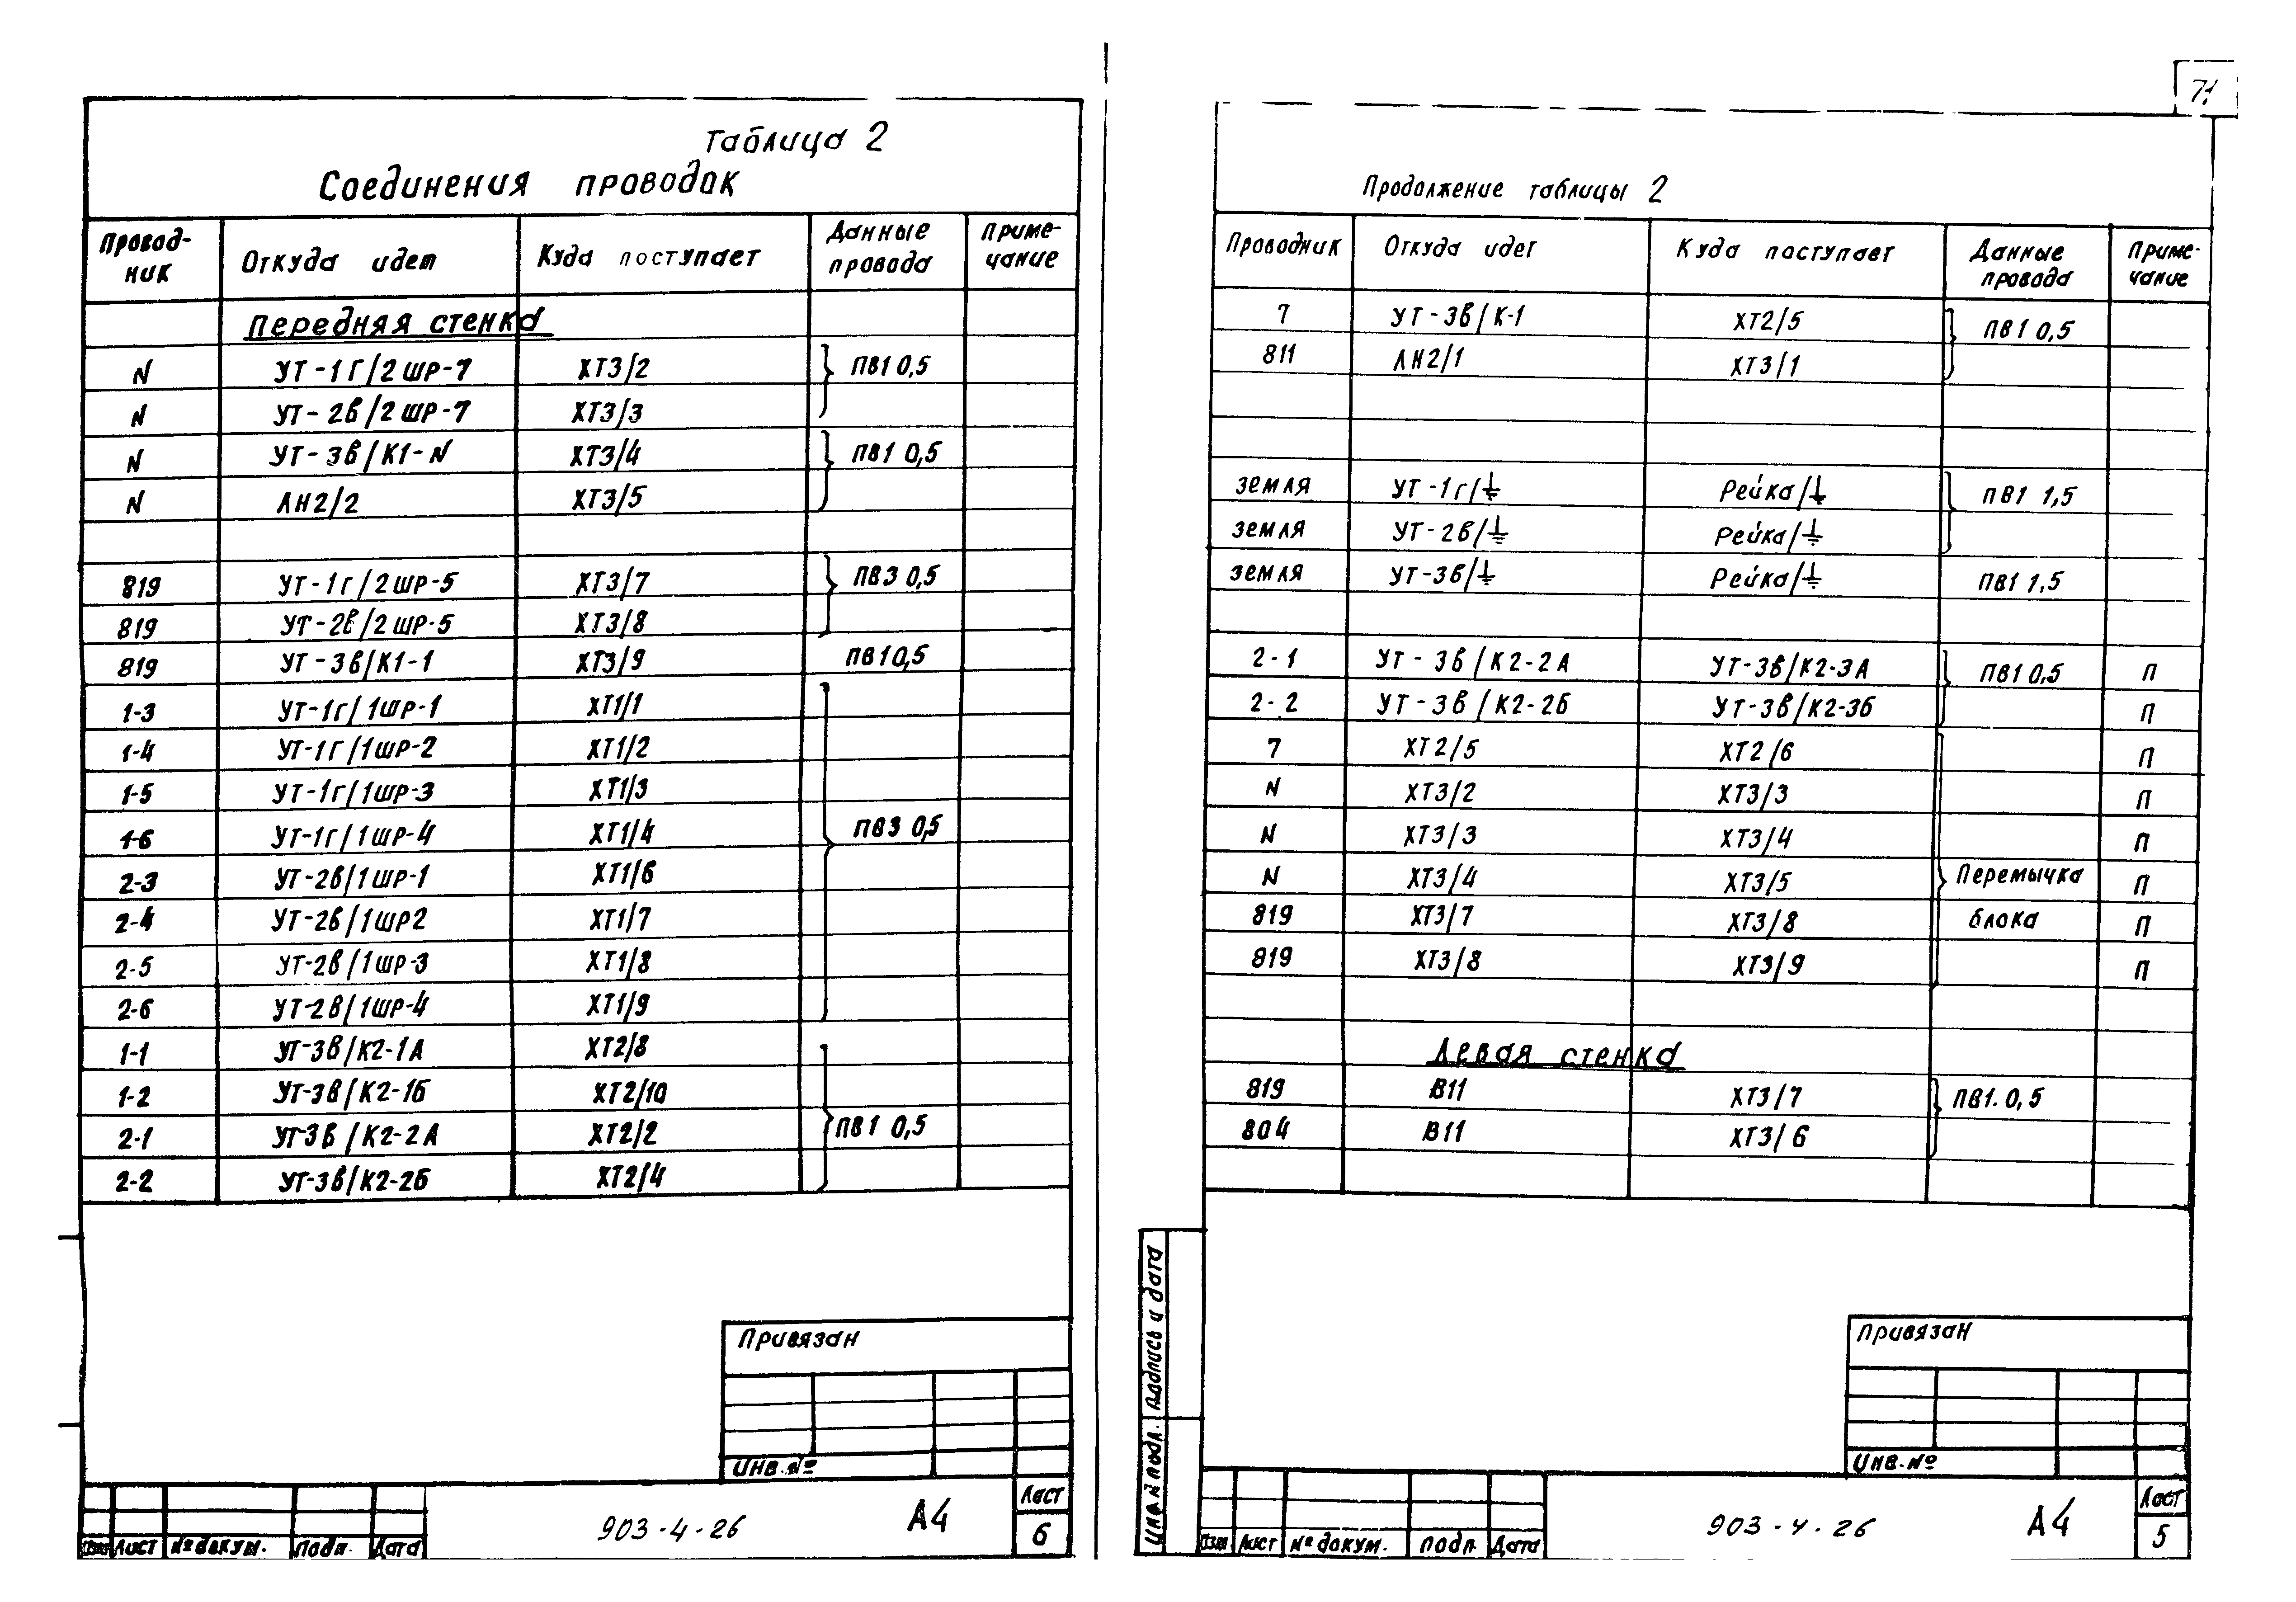 Таблица 2
Соединения проводок
Провод-ник Откуда идет Куда поступает Данные провода Приме-чание
Передняя стенка
N УТ-1Г/2ШР-7 ХТ3/2 ПВ1 0,5
N УТ-2в/2ШР-7 ХТ3/3
N УТ-3в/К1-N ХТ3/4 ПВ1 0,5
N ЛН2/2 ХТ3/5
819 УТ-1г/2ШР-5 ХТ3/7 ПВ3 0,5
819 УТ-2в/2ШР-5 ХТ3/8
819 УТ-3в/К1-1 ХТ3/9 ПВ1 0,5
1-3 УТ-1г/1ШР-1 ХТ1/1
1-4 УТ-1г/1ШР-2 ХТ1/2
1-5 УТ-1г/1ШР-3 ХТ1/3
1-6 УТ-1г/1ШР-4 ХТ1/4 ПВ3 0,5
2-3 УТ-2в/1ШР-1 ХТ1/6
2-4 УТ-2в/1ШР2 ХТ1/7
2-5 УТ-2в/1ШР-3 ХТ1/8
2-6 УТ-2в/1ШР-4 ХТ1/9
1-1 УТ-3в/К2-1А ХТ2/8
1-2 УТ-3в/К2-1б ХТ2/10
2-1 УТ-3в/К2-2А ХТ2/2 ПВ1 0,5
2-2 УТ-3в/К2-2б ХТ2/4
Привязан
Инв.№
Лист № докум. Подп. Дата
903-4-26
А4
Лист
6
71
Продолжение таблицы 2
Проводник Откуда идет Куда поступает Данные провода Приме-чание
7 УТ-3в/К-1 ХТ2/5 ПВ1 0,5
811 ЛН2/1 ХТ3/1
земля УТ-1г/⏚ Рейка/⏚ ПВ1 1,5
земля УТ-2в/⏚ Рейка/⏚
земля УТ-3в/⏚ Рейка/⏚ ПВ1 1,5
2-1 УТ-3в/К2-2А УТ-3в/К2-3А ПВ1 0,5 П
2-2 УТ-3в/К2-2б УТ-3в/К2-3б П
7 ХТ2/5 ХТ2/6 П
N ХТ3/2 ХТ3/3 П
N ХТ3/3 ХТ3/4 П
N ХТ3/4 ХТ3/5 Перемычка П
819 ХТ3/7 ХТ3/8 блока П
819 ХТ3/8 ХТ3/9 П
Левая стенка
819 В11 ХТ3/7 ПВ1. 0,5
804 В11 ХТ3/6
Инв.№ подл. Подпись и дата
Привязан
Инв.№
Лист № докум. Подп. Дата
903-4-26
А4
Лист
5